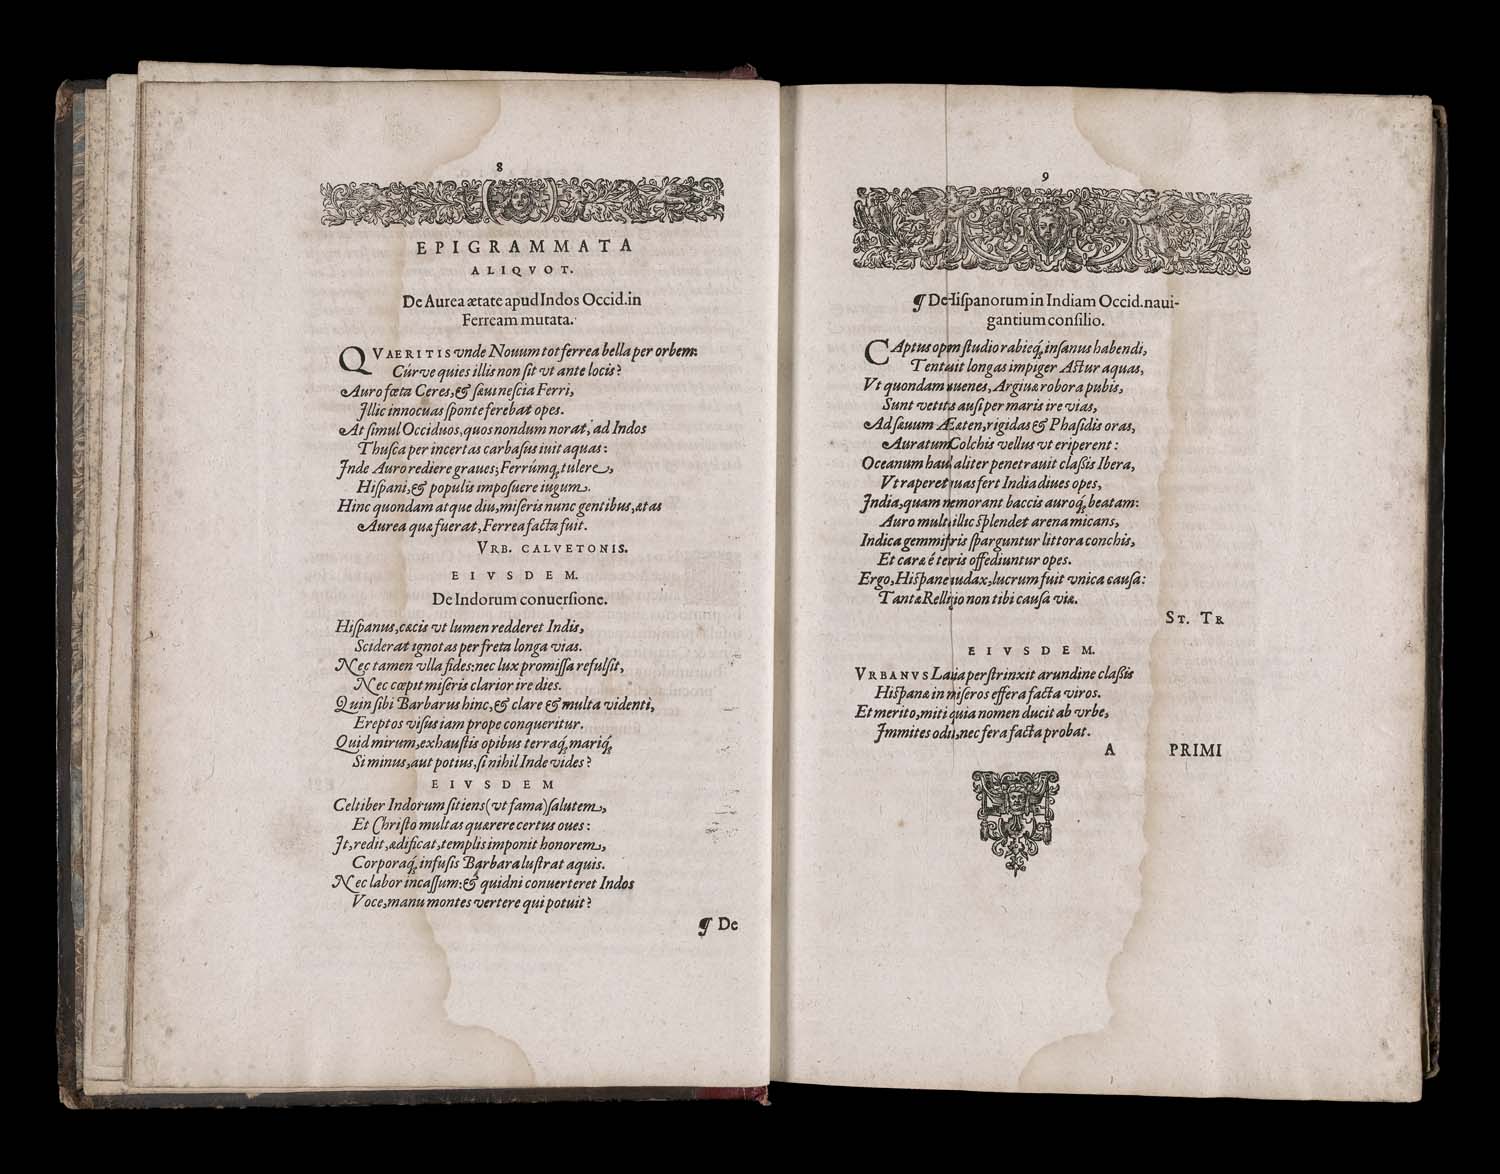 8
EPIGRAMMATA
ALIQVOT.
De Aurea ætate apud Indos Occid. in
Ferream mutata.
QVAERITIS vnde Nouum tot ferrea bella per orbem:
Cúrve quies illis non ſit vt ante locis?
Auro fœta Ceres, & ſæui neſcia Ferri,
Illic innocuas ſponte ferebat opes.
At ſimul Occiduos, quos nondum norat, ad Indos
Thuſca per incertas carbaſus iuit aquas:
Inde Auro rediere graues; Ferrúmq; tulere,
Hiſpani, & populis impoſuere iugum.
Hinc quondam atque diu, miſeris nunc gentibus, ætas
Aurea quæ fuerat, Ferrea facta fuit.
VRB. CALVETONIS.
EIVSDEM.
De Indorum conuerſione.
Hiſpanus, cæcis vt lumen redderet Indis,
Sciderat ignotas per freta longa vias.
Nec tamen vlla fides: nec lux promiſſa refulſit,
Nec cœpit miſeris clarior ire dies.
Quin ſibi Barbarus hinc, & clare & multa videnti,
Ereptos viſus iam prope conqueritur.
Quid mirum, exhauſtis opibus terraq́; mariq́;
Si minus, aut potius, ſi nihil Inde vides?
EIVSDEM
Celtiber Indorum ſitiens (vt fama) ſalutem,
Et Chriſto multas quærere certus oues:
It, redit, ædificat, templis imponit honorem,
Corporaq́; infuſis Barbara luſtrat aquis.
Nec labor incaſſum: & quidni conuerteret Indos
Voce, manu montes vertere qui potuit?
¶ De
9
¶ De Hiſpanorum in Indiam Occid. naui-
gantium conſilio.
CAptus opum ſtudio rabieq́; inſanus habendi,
Tentauit longas impiger Aſtur aquas,
Vt quondam iuuenes, Argiuæ robora pubis,
Sunt vetitas auſi per maris ire vias,
Ad ſæuum Ææten, rigidas & Phaſidis oras,
Auratum Colchis vellus vt eriperent:
Oceanum haud aliter penetrauit claſſis Ibera,
Vt raperet quas fert India diues opes,
India, quam memorant baccis auroq́; beatam:
Auro multa illic ſplendet arena micans,
Indica gemmiferis ſparguntur littora conchis,
Et caræ é terris effediuntur opes.
Ergo, Hiſpane audax, lucrum fuit vnica cauſa:
Tantæ Relligio non tibi cauſa viæ.
ST. TR
EIVSDEM.
VRBANVS Læua perſtrinxit arundine claſſis
Hiſpanæ in miſeros effera facta viros.
Et merito, miti quia nomen ducit ab vrbe,
Immites odit, nec fera facta probat.
A PRIMI